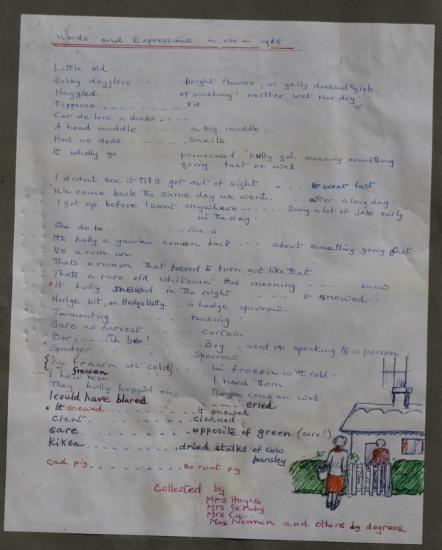 Words and Expressions in use in 1965
Little old
Gabby dagglers bright flowers, or gaily dressed girls.
Haggled of washing neither wet nor dry
Fippence 5d.
Cor de love a ducks
A head muddle a big muddle.
Hod me dods snails.
It wholly go pronounced 'hully go' meaning something
going fast or well.
I didnt see it till it got out of sight. It went fast
We come back the same day we went. after a long day
I got up before I went anywhere Doing a lot of jobs early
in the day.
She do be She is
Its hully a coman back about something going fast
Its a rum un
Thats a rumun that to turn out like that
Thats a rare old whitenin' this morning snow
*It hully snewed in the night it snowed
Hedge bit, or Hedge betty. a hedge sparrow.
Tormenting teasing.
Sare as harvest Certain
Bor, bor! Boy. used in speaking to a person
Spadger Sparrow
I'm frawn wi' cold I'm frozen with cold.
frewen
I hew em I need them
They hully happed on They come on well
I could have blared cried
* It snewed It snowed
Clent cleaned
sare opposite of green (sere?)
Kiksa dried stalks of cow
parsley
cad pig the runt pig
Collected by
Mrs
Mrs
Mrs
Mrs Norman and others by degrees.